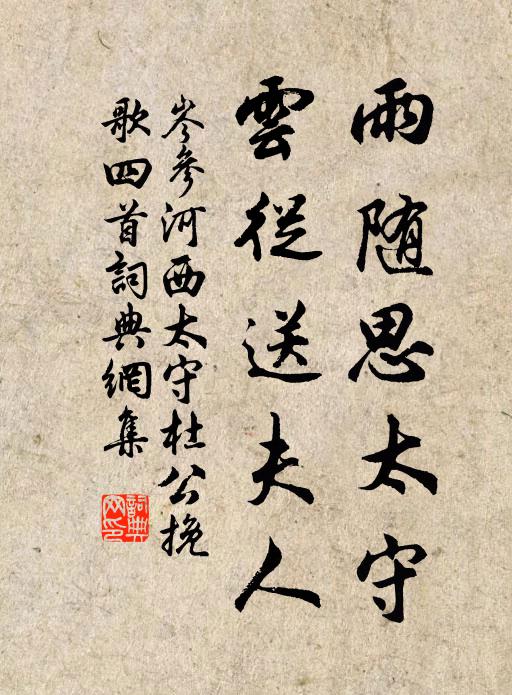 雨随思太守
雲從送夫人
岑參河西太守杜公挽
歌四首詞典網集
詞典
网印